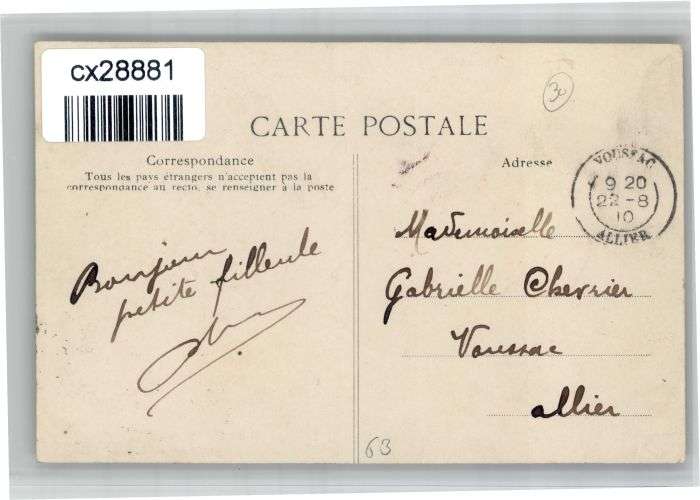 cx28881
30
CARTE POSTALE
Correspondance
Tous les pays étrangers n'acceptent pas la
correspondance au recto, se renseigner à la poste
Bonjour
petite filleule
Adresse
VOUSSAC
9 20
22-8
10
ALLIER
Mademoiselle
Gabrielle Chevrier
Voussac
Allier
63